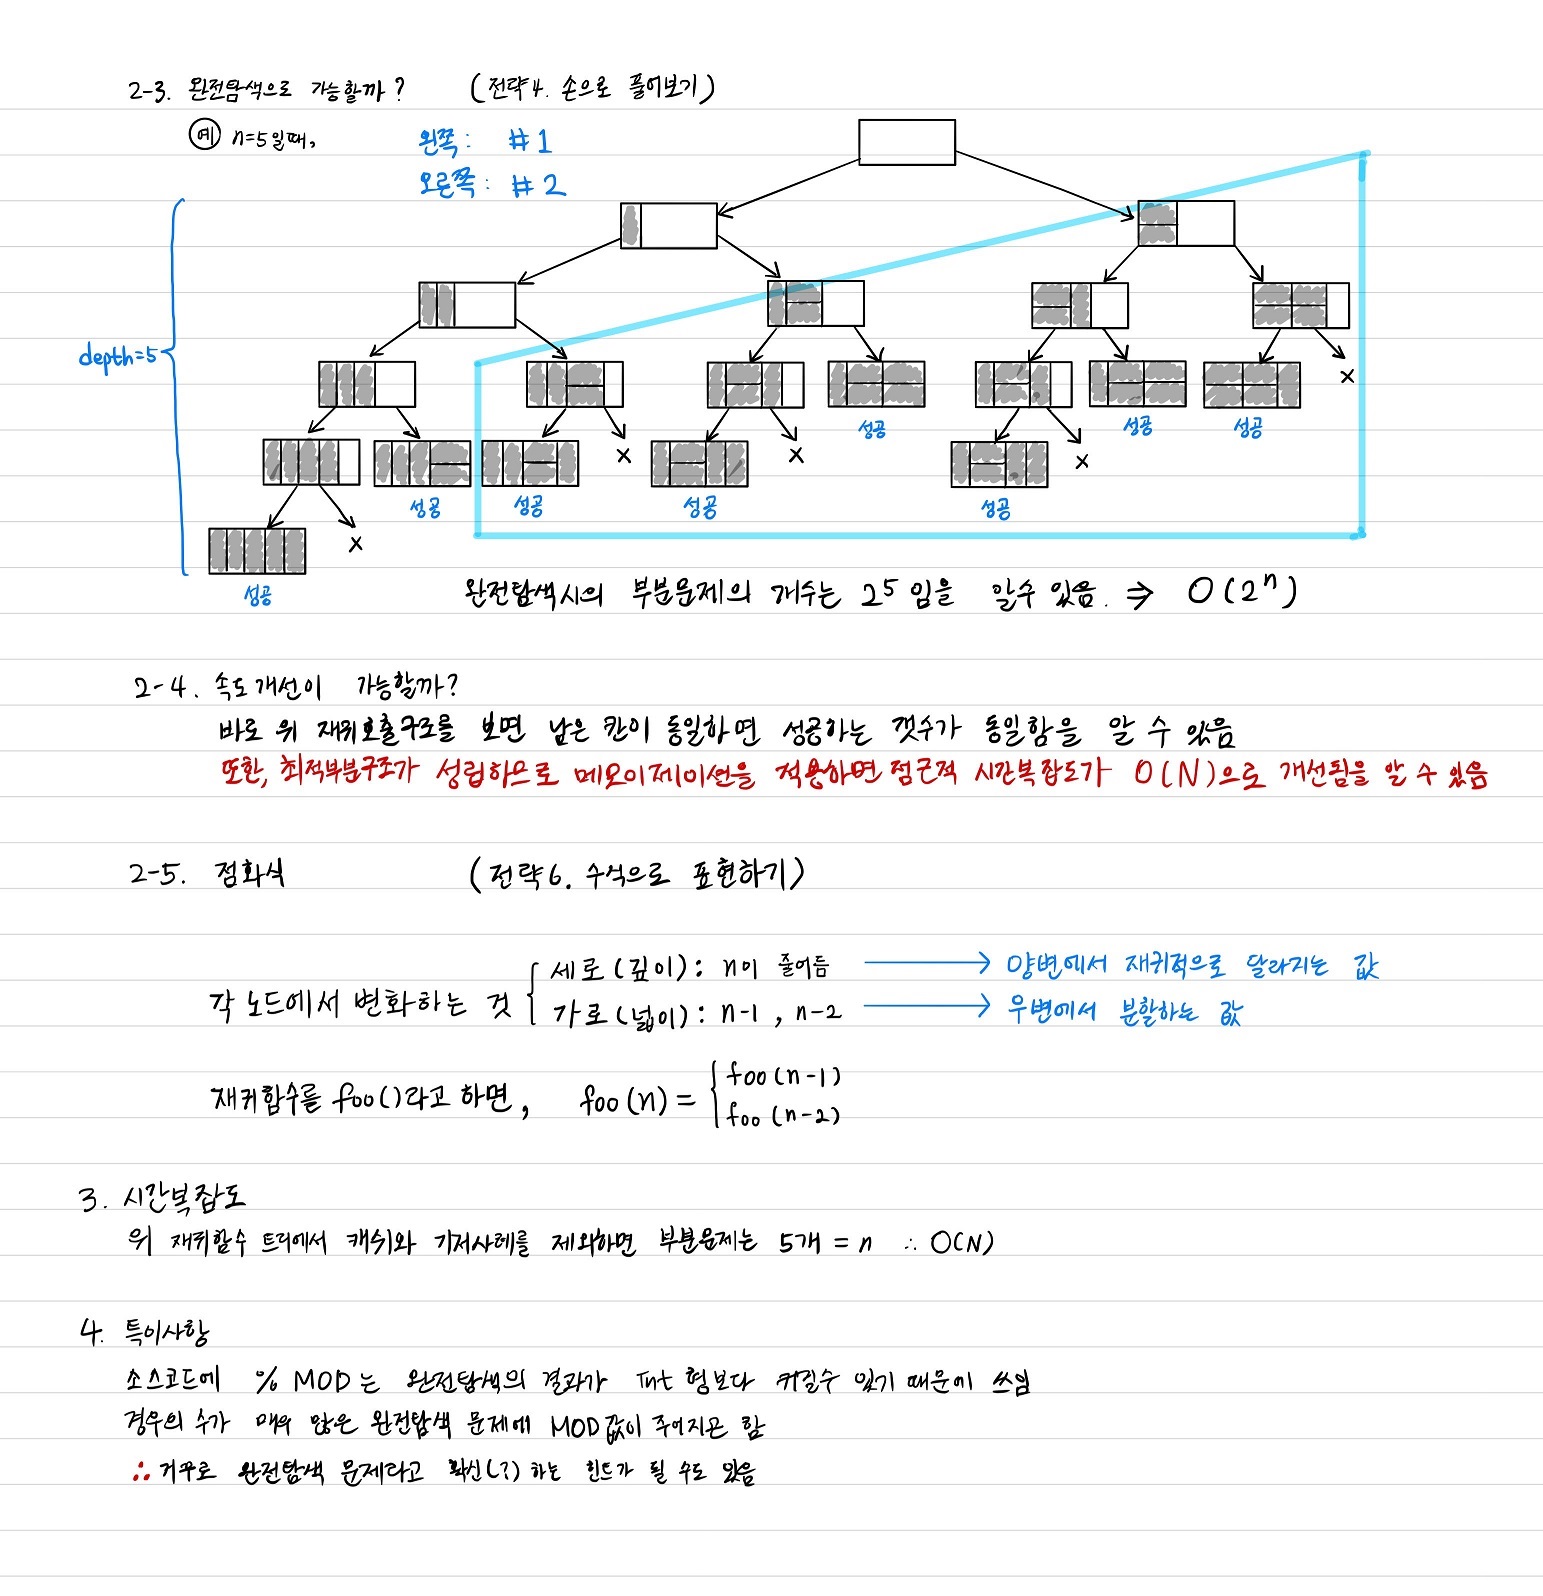 2-3. 완전탐색으로 가능할까? (전략4. 손으로 풀어보기)
예 n=5일때,
왼쪽: #1
오른쪽: #2
depth=5
x
성공
성공
성공
x
x
성공
x
성공
성공
x
성공
성공
완전탐색시의 부분문제의 개수는 2⁵임을 알수 있음. ⇒ O(2ⁿ)
2-4. 속도개선이 가능할까?
바로 위 재귀호출구조를 보면 남은 칸이 동일하면 성공하는 갯수가 동일함을 알 수 있음
또한, 최적부분구조가 성립하므로 메모이제이션을 적용하면 점근적 시간복잡도가 O(N)으로 개선됨을 알 수 있음
2-5. 점화식 (전략6. 수식으로 표현하기)
각 노드에서 변화하는 것
세로(깊이): n이 줄어듬 → 양변에서 재귀적으로 달라지는 값
가로(넓이): n-1, n-2 → 우변에서 분할하는 값
재귀함수를 foo()라고 하면, foo(n) = { foo(n-1)
foo(n-2)
3. 시간복잡도
위 재귀함수 트리에서 캐쉬와 기저사례를 제외하면 부분문제는 5개 = n ∴ O(N)
4. 특이사항
소스코드에 % MOD는 완전탐색의 결과가 Int형보다 커질수 있기 때문에 쓰임
경우의 수가 매우 많은 완전탐색 문제에 MOD값이 주어지곤 함
∴ 거꾸로 완전탐색 문제라고 확신(?)하는 힌트가 될 수도 있음